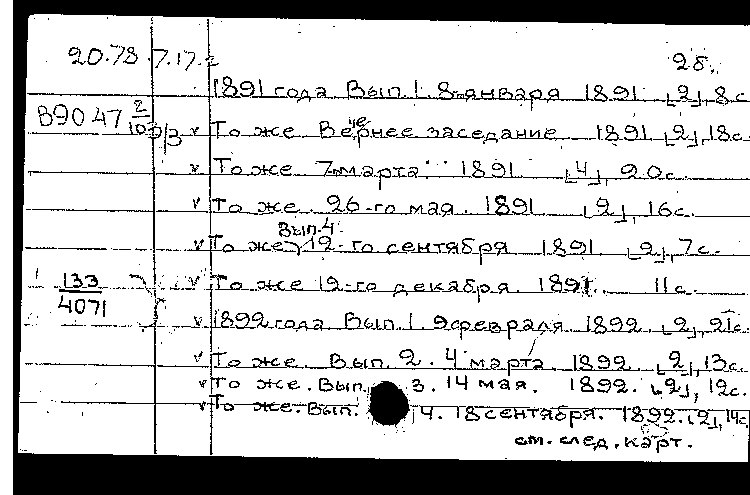 20.78.7.17.2 2б.
1891 года Вып. 1. 8-января 1891 [2], 8с
В9047 2/10
То же Вечернее заседание 1891 [2], 18с.
То же 7-марта 1891 [4], 20с.
То же. 26-го мая. 1891 [2], 16с.
То же Вып.4. 12-го сентября 1891. [2], 7с.
133/4071
То же 12-го декабря. 1891. 11с.
1892 года Вып. 1. 9 февраля 1892. [2], 21с.
То же. Вып. 2. 4 марта 1892. [2], 13с.
То же. Вып. 3. 14 мая. 1892. [2], 12с.
То же. Вып. 4. 18 сентября. 1892. [2], 14с.
см. след. карт.